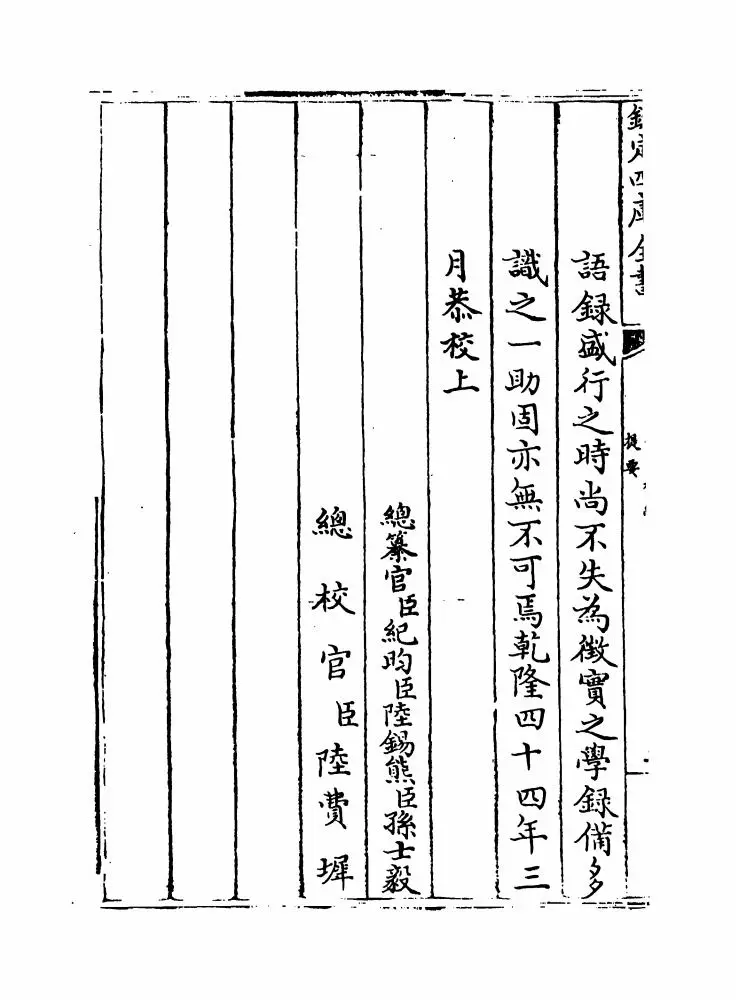 欽定四庫全書
提要
語録盛行之時尚不失為徵實之學録備多
識之一助固亦無不可焉乾隆四十四年三
月恭校上
總纂官臣紀昀臣陸錫熊臣孫士毅
總校官臣陸費墀